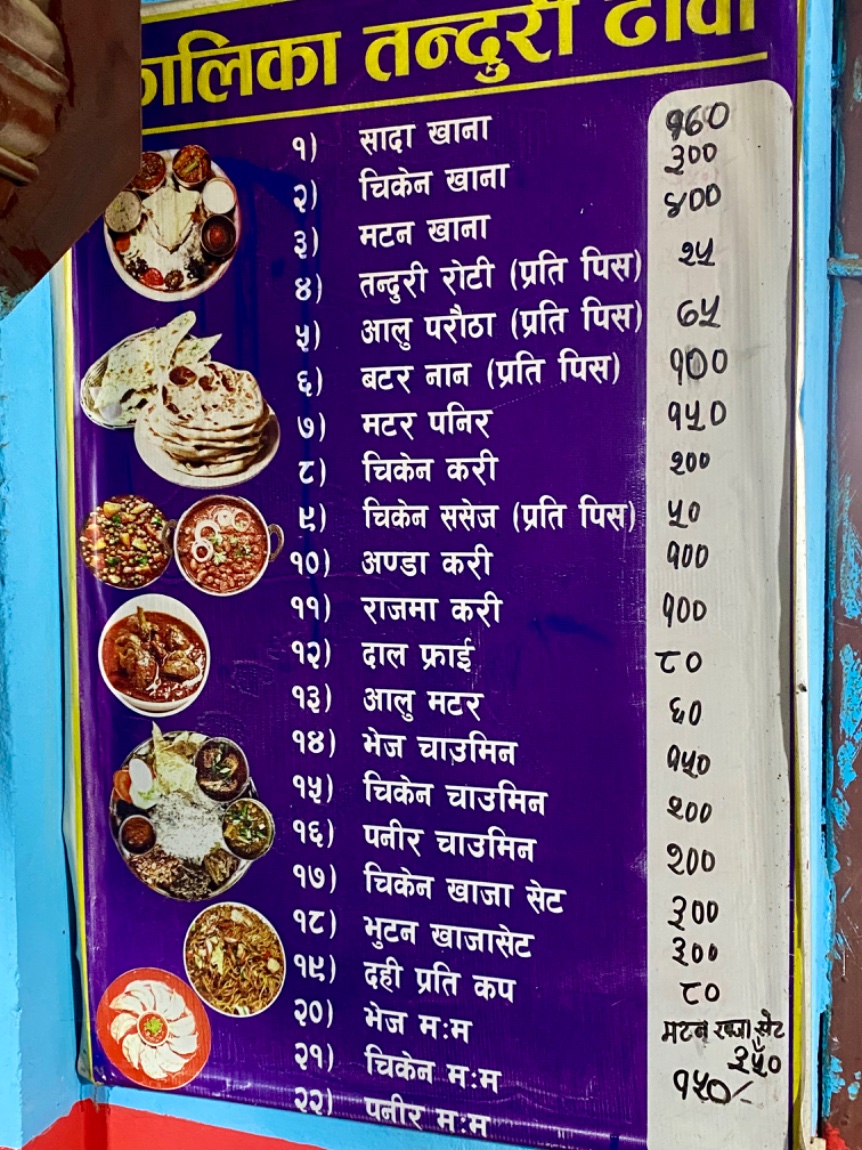 कालिका तन्दुरी ढावा
१) सादा खाना १७०
२) चिकेन खाना ३००
३) मटन खाना ४००
४) तन्दुरी रोटी (प्रति पिस) २५
५) आलु परौठा (प्रति पिस) ७५
६) बटर नान (प्रति पिस) १००
७) मटर पनिर १५०
८) चिकेन करी २००
९) चिकेन ससेज (प्रति पिस) ५०
१०) अण्डा करी १००
११) राजमा करी १००
१२) दाल फ्राई ८०
१३) आलु मटर ६०
१४) भेज चाउमिन १५०
१५) चिकेन चाउमिन २००
१६) पनीर चाउमिन २००
१७) चिकेन खाजा सेट ३००
१८) भुटन खाजासेट ३००
१९) दही प्रति कप ८०
२०) भेज म:म
मटन खाजा सेट
३५०
२१) चिकेन म:म १५०/-
२२) पनीर म:म